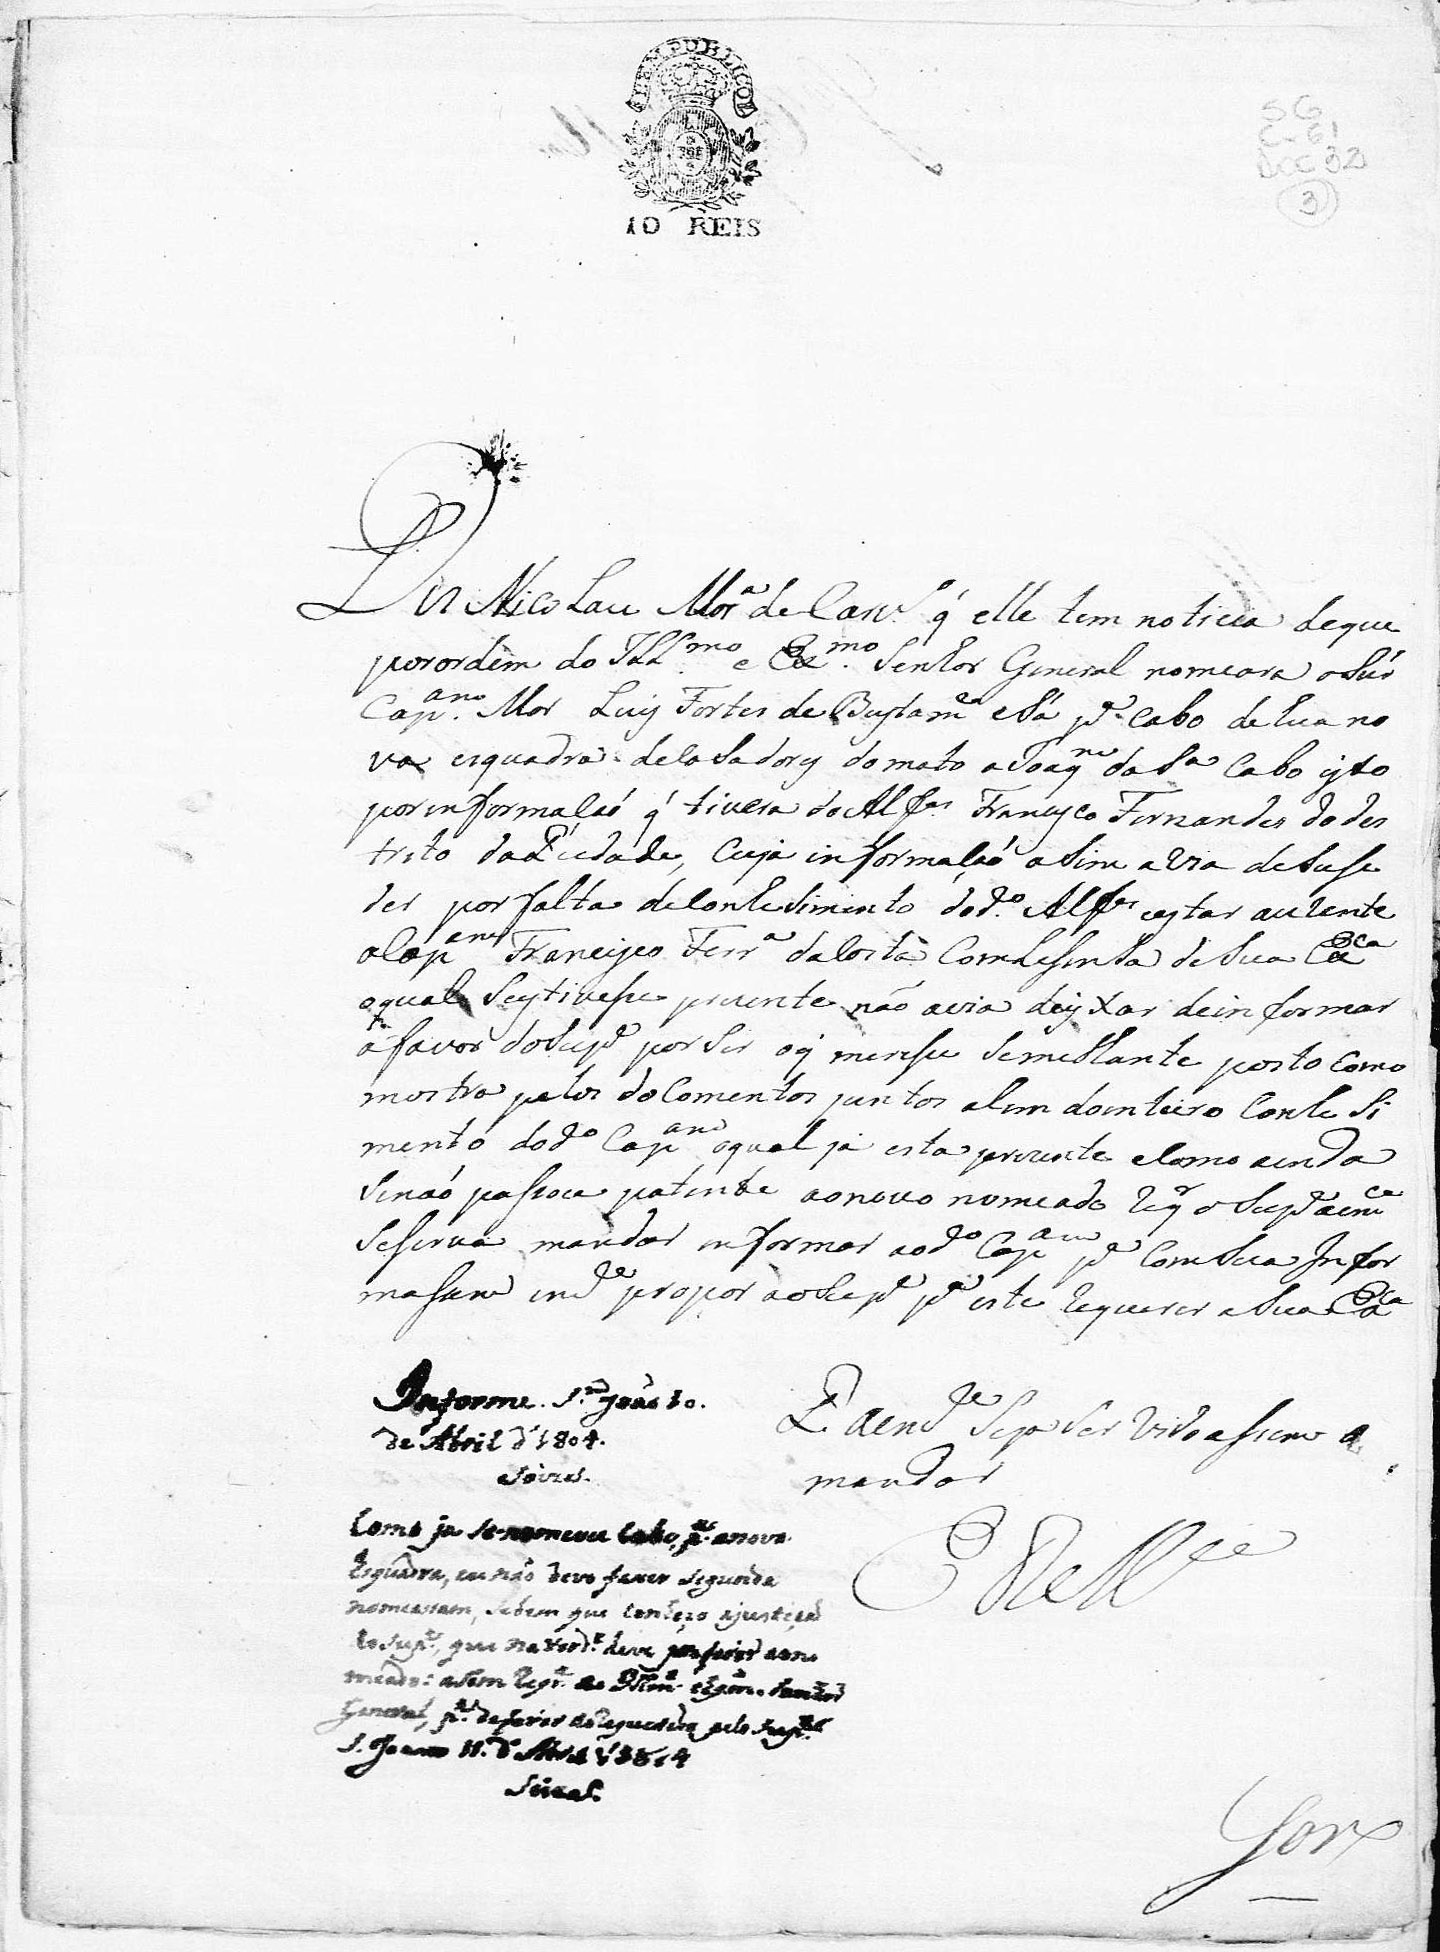 BEM PUBLICO
10 REIS
SG
C-61
DOC 32
3
Diz Nicolau Mor.ª de Carv.º q' elle tem noticia de que
por ordem do Ill.mo e Ex.mo Senhor General nomeara o Snr
Cap.am Mor Luiz Fortes de Bustam.e e Sá p.ª Cabo de hua no
va esquadra de casadores do mato a Joaq.m da S.ª Cabo isto
por informasaó q' tivera do Alf.es Francisco Fernandes do des
trito da Piedade, cuja informasaó asim avia de suse
der por falta de conhesimento do d.º Alf.es estar auzente
o Cap.am Francisco Ferr.ª da Costa Comde Sua Ex.ca
o qual se estivese prezente não avia deixar de informar
a favor do Sup.e por ser o q' merese semelhante posto como
mostra pelos docomentos juntos alem do inteiro conhesi
mento do d.º Cap.am o qual ja esta prezente e como ainda
se naó pasou patente ao novo nomeado req.r o Sup.e a vm.ce
se sirva mandar informar ao d.º Cap.am p.ª com sua infor
masam propor ao Sup.e p.ª este requerer a Sua Ex.ca
P. a seja servido assim o
mandar
E R M.ce
Informe. S. Joaó 10.
de Abril d' 1804.
Como ja se nomeou Cabo, p.ª a nova
Esquadra, eu não devo fazer segunda
nomeasam, se bem que conheço a justiça
do Sup.e, que na verd.e deve preferir ao no
meado: asim req.r ao Ill.mo e Ex.mo Senhor
General, p.ª deferir ao requerido pelo Sup.e
S. Joam 11. d' Abril d' 1804